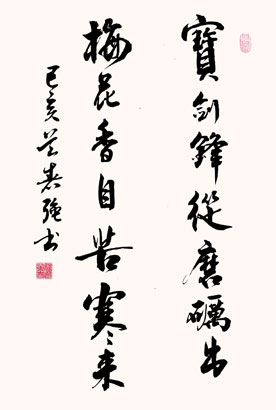 寶劍鋒從磨礪出
梅花香自苦寒来
己亥强书